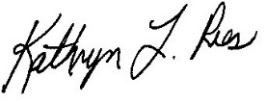 Kathryn L. Rees